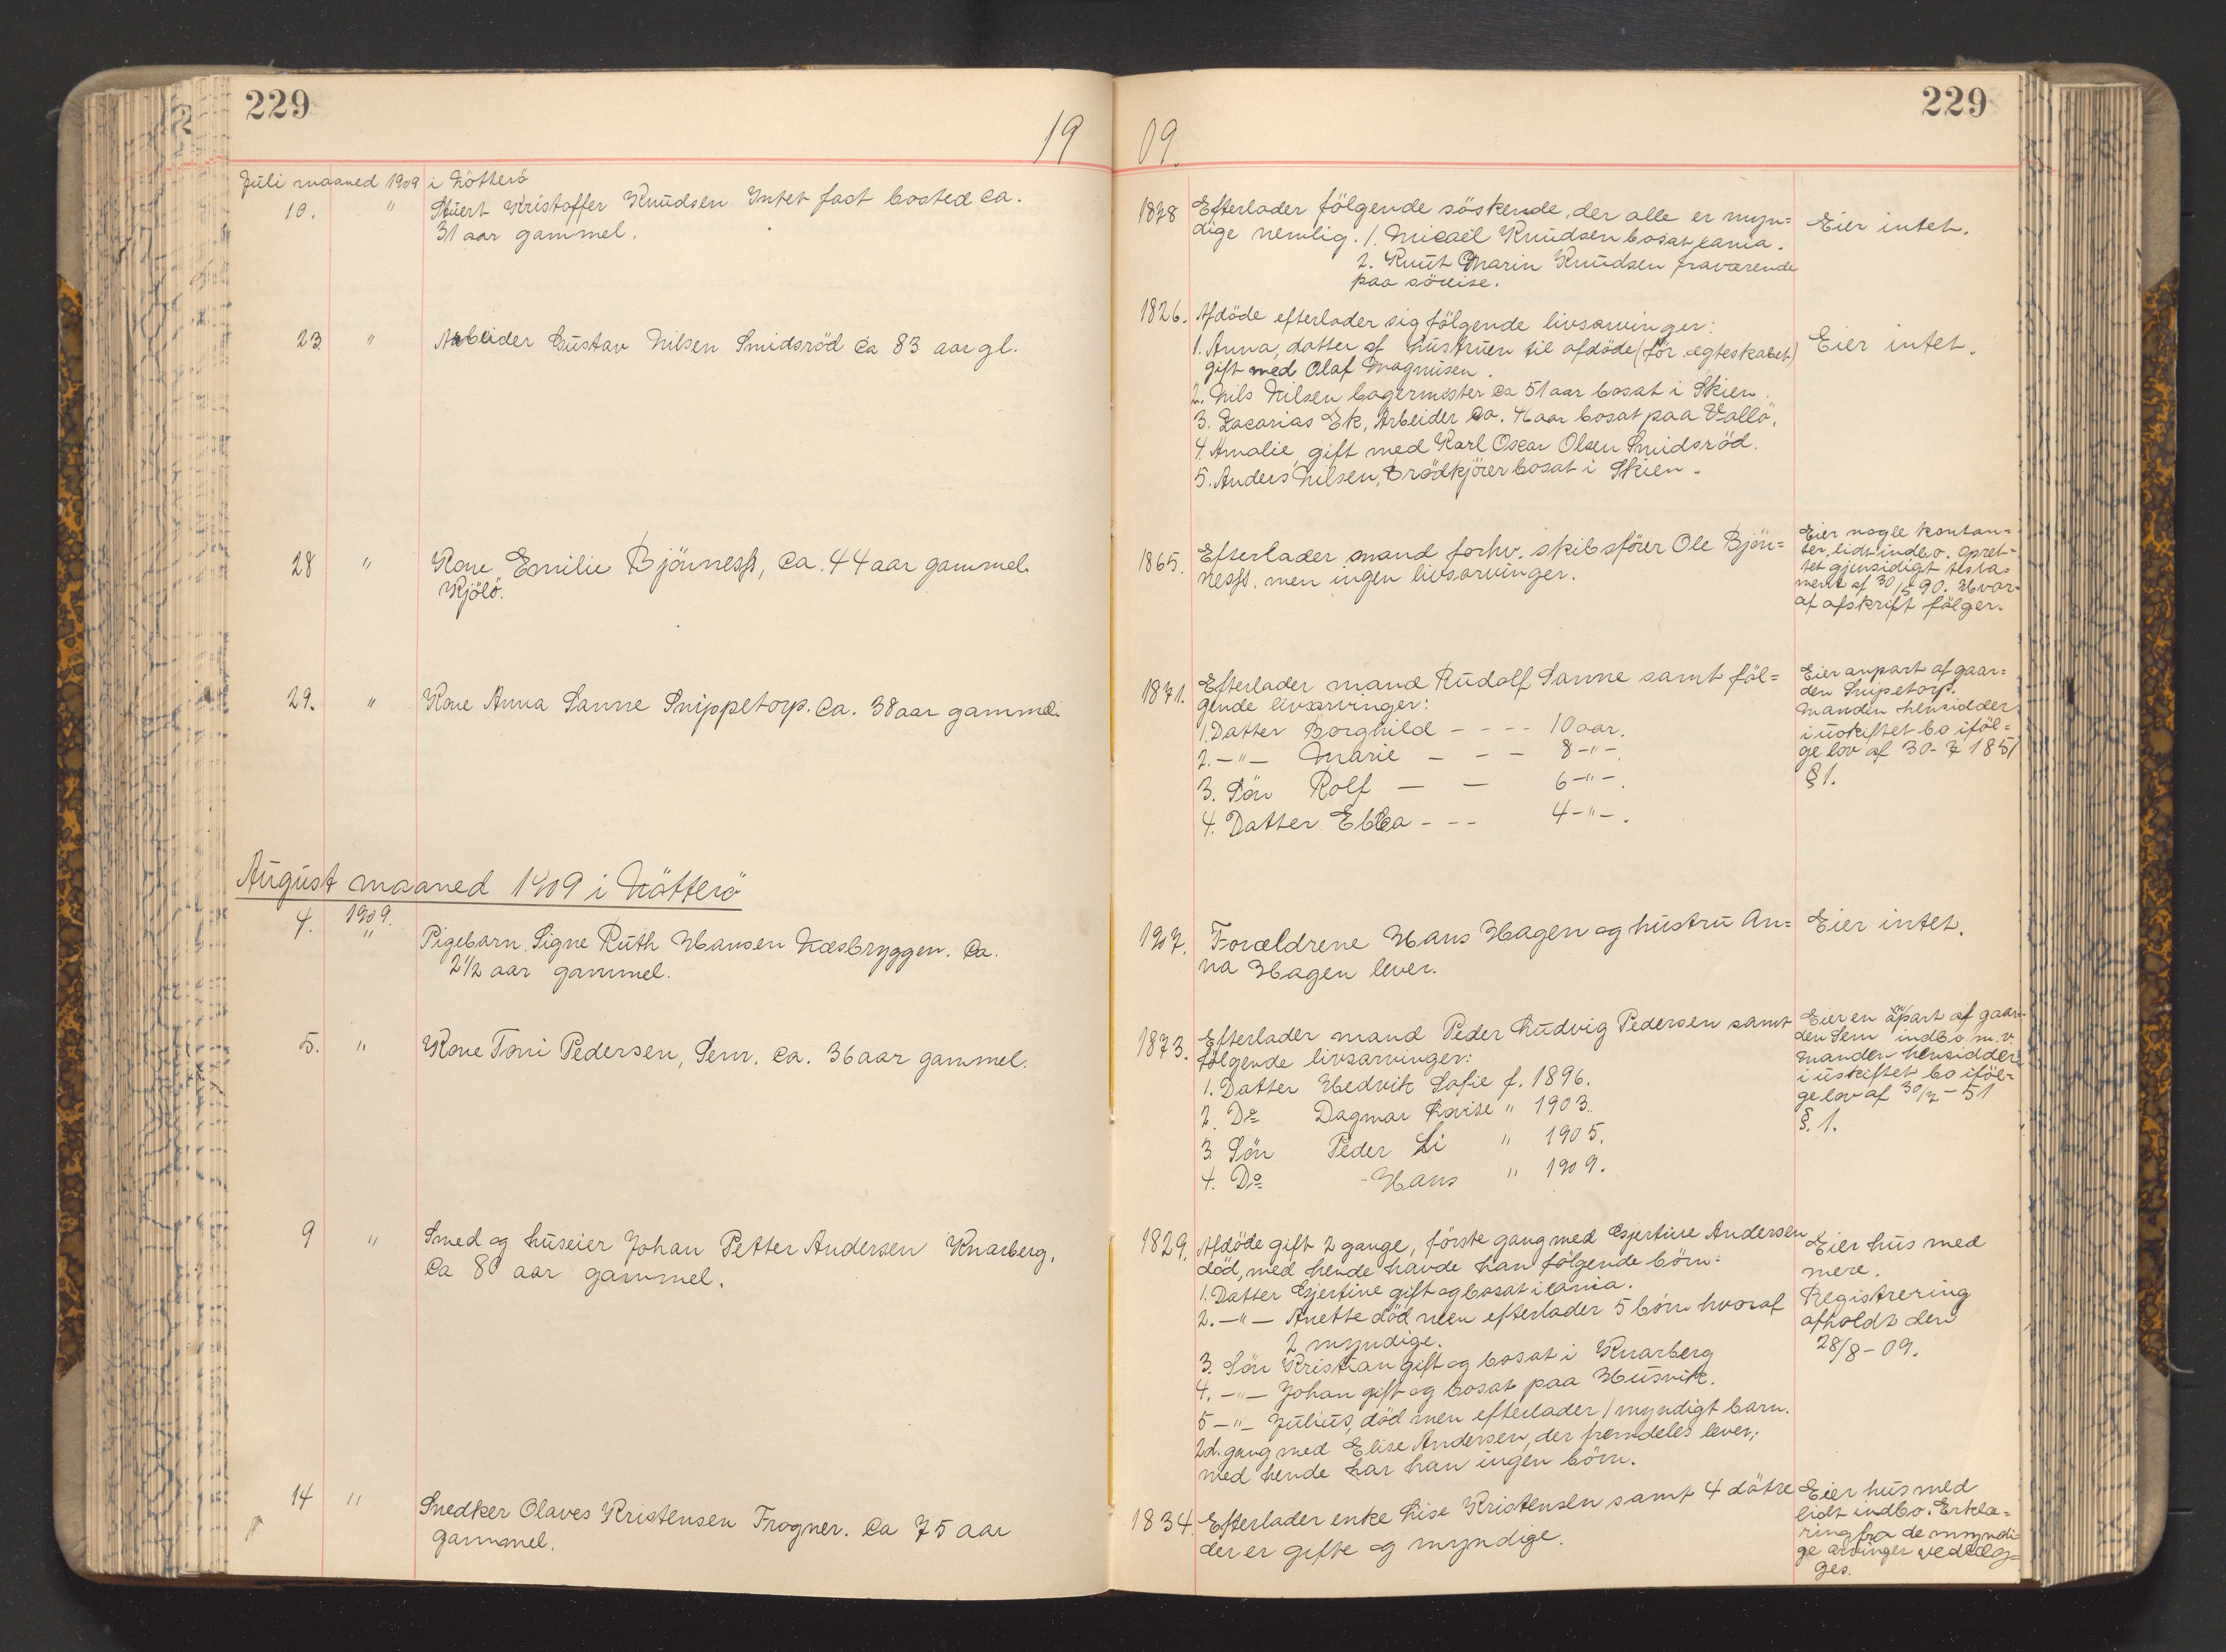 229
229
19
09.
Juli maaned 1909 i Nötterö
10. " Stuert Kristoffer Knudsen Intet fast bosted ca.
31 aar gammel.
1878 Efterlader fölgende söskende, der alle er myn=
dige nemlig. 1. Micael Knudsen bosat .
2. Knut Marin Knudsen fraværende
paa söreise.
Eier intet.
23. " Arbeider Gustav Nilsen Smidsröd ca 83 aar gl.
1826. Afdöde efterlader sig fölgende livsarvinger:
1. Anna, datter af hustruen til afdöde (för egteskabet)
gift med Olaf Magnusen.
2. Nils Nilsen bagermester ca 51 aar bosat i Skien.
3. Zacarias Ek, Arbeider ca. 41 aar bosat paa Vallö.
4. Amalie, gift med Karl Oscar Olsen Smidsröd.
5. Anders Nilsen, Brödkjörer bosat i Skien.
Eier intet.
28 " Kone Emilie Bjönness, ca. 44 aar gammel.
Kjölö.
1865. Efterlader mand forhv. skibsförer Ole Bjön=
ness. men ingen livsarvinger.
Eier nogle kontan=
ter, lidt indbo. Opret=
tet gjensidigt testa=
mente af 30/5 90. Hvor=
af afskrift fölger.
29. " Kone Anna Sanne Snippetorp. ca. 38 aar gammel.
1871. Efterlader mand Rudolf Sanne samt föl=
gende livsarvinger:
1. Datter Borghild - - - - 10 aar.
2. -"- Marie - - - 8 -"-.
3. Sön Rolf - - 6 -"-.
4. Datter Ebba - - - 4 -"-.
Eier anpart af gaar=
den Snipetorp.
Manden hensidder
i uskiftet bo iföl=
ge lov af 30-7 1851
§ 1.
August maaned 1909 i Nötterö
4. 1909. " Pigebarn Signe Ruth Hansen Næsbryggen. ca.
2 1/2 aar gammel.
1907. Forældrene Hans Hagen og hustru An=
na Hagen lever.
Eier intet.
5. " Kone Toni Pedersen, Sem. ca. 36 aar gammel.
1873. Efterlader mand Peder Ludvig Pedersen samt
fölgende livsarvinger:
1. Datter Hedvik Sofie f. 1896.
2. Do Dagmar Lovise " 1903.
3. Sön Peder Li " 1905.
4. Do Hans " 1909.
Eier en apart af gaar=
den Sem indbo m. v.
Manden hensidder
i uskiftet bo iföl=
ge lov af 30/7 - 51
§. 1.
9 " Smed og huseier Johan Petter Andersen Knarberg.
Ca 80 aar gammel.
1829. Afdöde gift 2 gange, förste gang med Gjertine Andersen
död, med hende havde han fölgende börn:
1. Datter Gjertine gift og bosat i .
2. -"- Anette död men efterlader 5 börn hvoraf
2 myndige.
3. Sön Kristian gift og bosat i Knarberg
4. -"- Johan gift og bosat paa Husvik.
5 -"- Julius, död men efterlader 1 myndigt barn.
2d. gang med Elise Andersen, der fremdeles lever,
med hende har han ingen börn.
Eier hus med
mere.
Registrering
afholdt den
28/8 - 09.
14 " Snedker Olaves Kristensen Trogner. ca 75 aar
gammel.
1834. Efterlader enke Lise Kristensen samt 4 dötre
der er gifte og myndige.
Eier hus med
lidt indbo. Erklæ=
ring fra de myndi=
ge arvinger vedlæg=
ges.